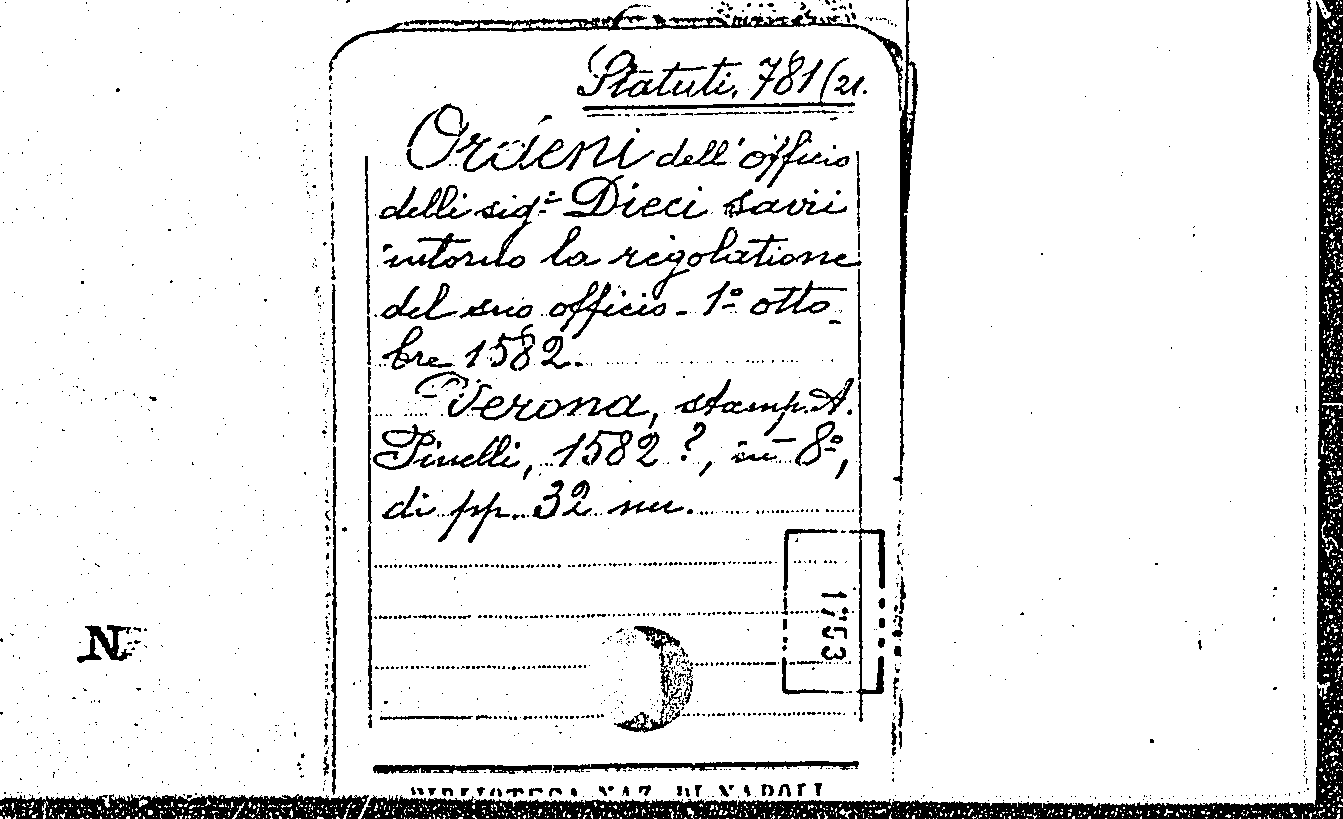 Statuti. 781(21.
Ordeni dell'officio
delli sig.ri Dieci savii
intorno la regolatione
del suo officio - 1º otto-
bre 1582.
Verona, stamp. A.
Pinelli, 1582 ?, in-8º,
di pp. 32 nn.
1753
N
BIBLIOTECA NAZ. DI NAPOLI